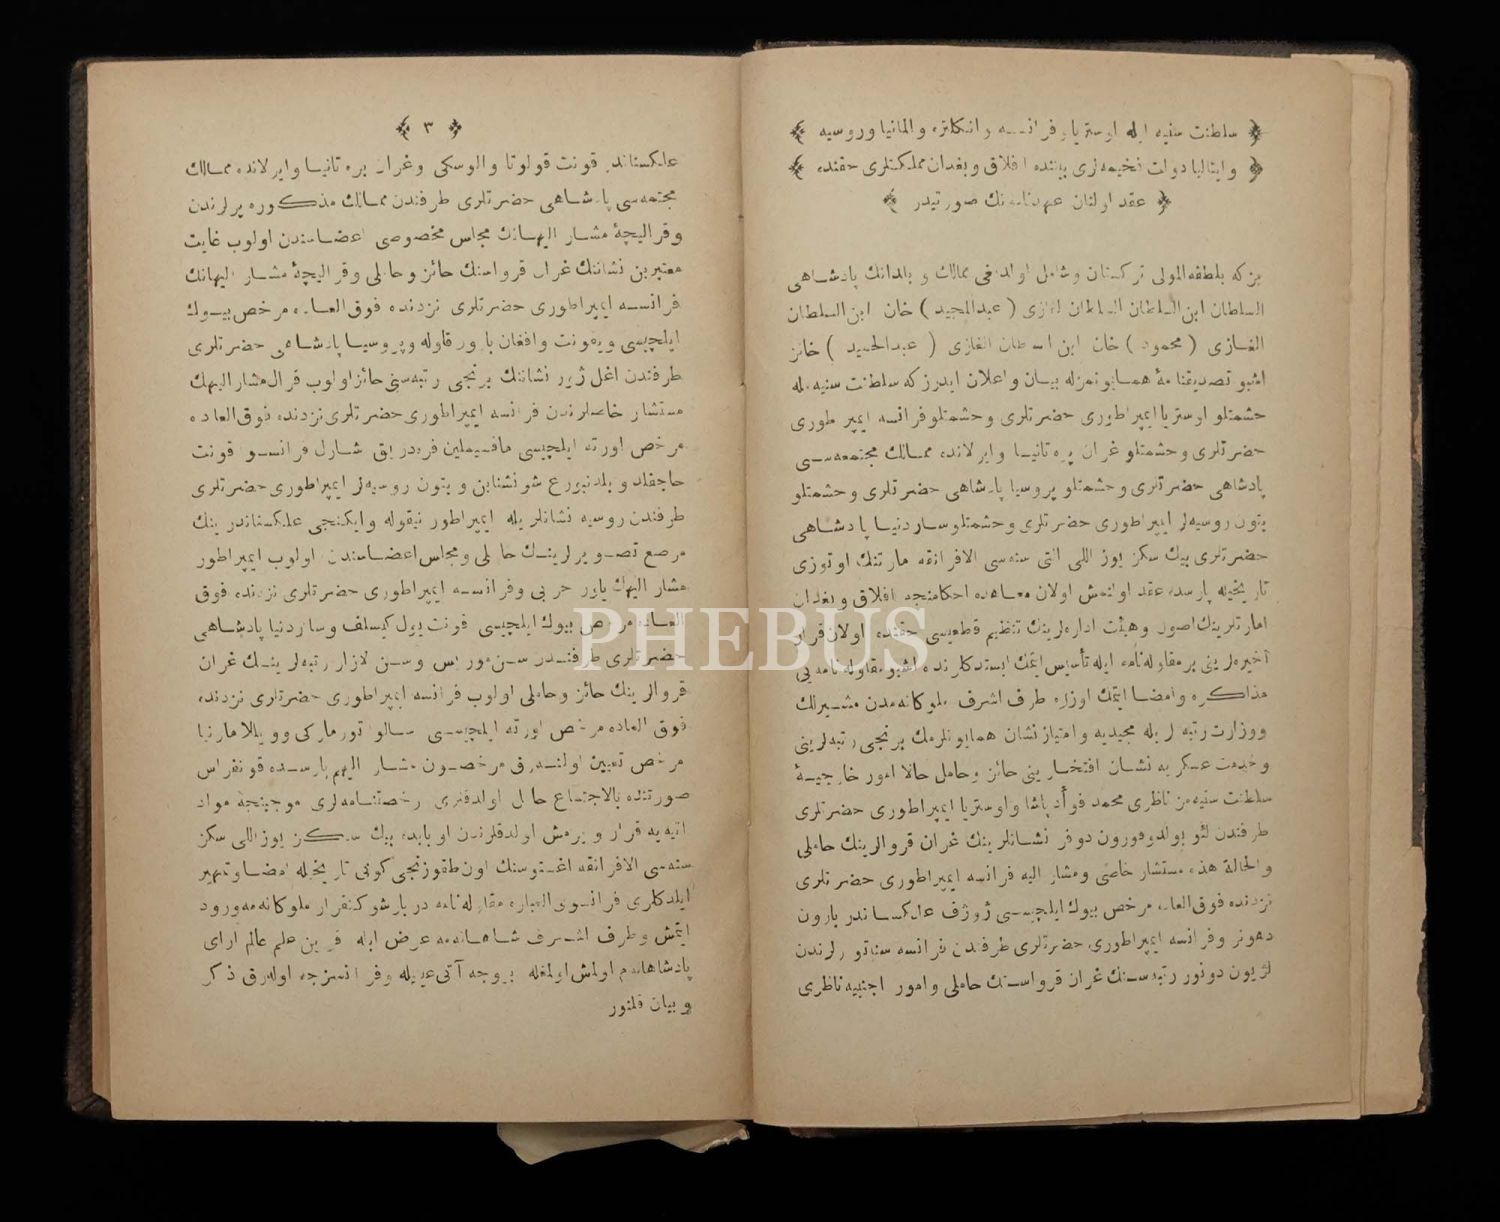 سلطنت سنیه ایله اوستریا و فرانسه و انكلتره و المانیا و روسیه
و ایتالیا دولت فخیمه‌لری بیننده افلاق و بغدان مملكتلری حقنده
عقد اولنان عهدنامه‌نك صورتیدر
بز كه بلطفه المولی تركستان و شامل اولدیغی ممالك و بلدانك پادشاهی
السلطان ابن السلطان السلطان الغازی ( عبدالمجید ) خان ابن السلطان
الغازی ( محمود ) خان ابن السلطان الغازی ( عبدالحمید ) خانز
اشبو تصدیقنامهٔ همایونمزله بیان و اعلان ایدرز كه سلطنت سنیه‌مله
حشمتلو اوستریا ایمپراطوری حضرتلری و حشمتلو فرانسه ایمپراطوری
حضرتلری و حشمتلو غران بره تانیا و ایرلانده ممالك مجتمعه‌سی
پادشاهی حضرتلری و حشمتلو پروسیا پادشاهی حضرتلری و حشمتلو
بتون روسیه‌لر ایمپراطوری حضرتلری و حشمتلو ساردنیا پادشاهی
حضرتلری بیك سكز یوز اللی التی سنه‌سی الافرانقه مارتنك اوتوزی
تاریخیله پارسده عقد اولنمش اولان معاهده احكامنجه افلاق و بغدان
امارتلرینك اصول و هیئت اداره‌لرینك تنظیم قطعیسی حقنده اولان قرار
اخیره‌لرینی بر مقاوله‌نامه ایله تأسیس ایتمك ایستدكلرنده اشبو مقاوله‌نامه‌یی
مذاكره و امضا ایتمك اوزره طرف اشرف ملوكانه‌مدن مشیرلك
و وزارت رتبه‌لریله مجیدیه و امتیاز نشان همایونلرمك برنجی رتبه‌لرینی
و خدمت عسكریه نشان افتخارینی حائز و حامل حالا امور خارجیهٔ
سلطنت سنیه‌مز ناظری محمد فوأد پاشا و اوستریا ایمپراطوری حضرتلری
طرفندن لئوپولد و فورون دوفر نشانلرینك غران قروالرینك حاملی
و الحالة هذه مستشار خاصی و مشار الیه فرانسه ایمپراطوری حضرتلری
نزدنده فوق العاده مرخص بیوك ایلچیسی ژوزف علكساندر بارون
دهوبنر و فرانسه ایمپراطوری حضرتلری طرفندن فرانسه سناتورلرندن
لژیون دونور رتبه‌سنك غران قرواسنك حاملی و امور اجنبیه ناظری
٣
علكساندر قونت قولونا والوسكی و غران بره تانیا و ایرلانده ممالك
مجتمعه‌سی پادشاهی حضرتلری طرفندن ممالك مذكوره پرلرندن
و قرالیچهٔ مشار الیهانك مجلس مخصوصی اعضاسندن اولوب غایت
معتبر بن نشاننك غران قرواسنك حائز و حاملی و قرالیچهٔ مشار الیهانك
فرانسه ایمپراطوری حضرتلری نزدنده فوق العاده مرخص بیوك
ایلچیسی ویقونت و پروسیا پادشاهی حضرتلری
طرفندن اغل روژ نشاننك برنجی رتبه‌سنی حائز اولوب قرال مشار الیهك
مستشار خاصلرندن فرانسه ایمپراطوری حضرتلری نزدنده فوق العاده
مرخص اورته ایلچیسی ماقسیملین فردریق شارل فرانسوا قونت
حاجفلد و بتون روسیه‌لر ایمپراطوری حضرتلری
طرفندن روسیه نشانلریله ایمپراطور نیقوله و ایكنجی علكساندرینك
مرصع تصویرلرینك حاملی و مجلس اعضاسندن اولوب ایمپراطور
مشار الیهك یاور حربی و فرانسه ایمپراطوری حضرتلری نزدنده فوق
العاده مرخص بیوك ایلچیسی قونت پول كیسلف و ساردنیا پادشاهی
حضرتلری طرفندن سن موریس و سن لازار رتبه‌لرینك غران
قروالرینك حائز و حاملی اولوب فرانسه ایمپراطوری حضرتلری نزدنده
فوق العاده مرخص اورته ایلچیسی سالواتور ماركی دوویلامارینا
مرخص تعیین اولنه‌رق مرخصون مشار الیهم پارسده قونفرانس
صورتنده بالاجتماع حامل اولدقلری رخصتنامه‌لری موجبنجه مواد
اتیه‌یه قرار ویرمش اولدقلرندن اوبابده بیك سكز یوز اللی سكز
سنه‌سی الافرانقه اغستوسنك اون طقوزنجی كونی تاریخیله امضا و تمهیر
ایلدكلری فرانسوی العباره مقاوله‌نامه دربار شوكتقرار ملوكانه‌مه ورود
ایتمش و طرف اشرف شاهانه‌مه عرض ایله قرین علم عالم ارای
پادشاهانه‌م اولمش اولمغله بروجه آتی عینیله و فرانسزجه اوله‌رق ذكر
و بیان قلنور
PHEBUS